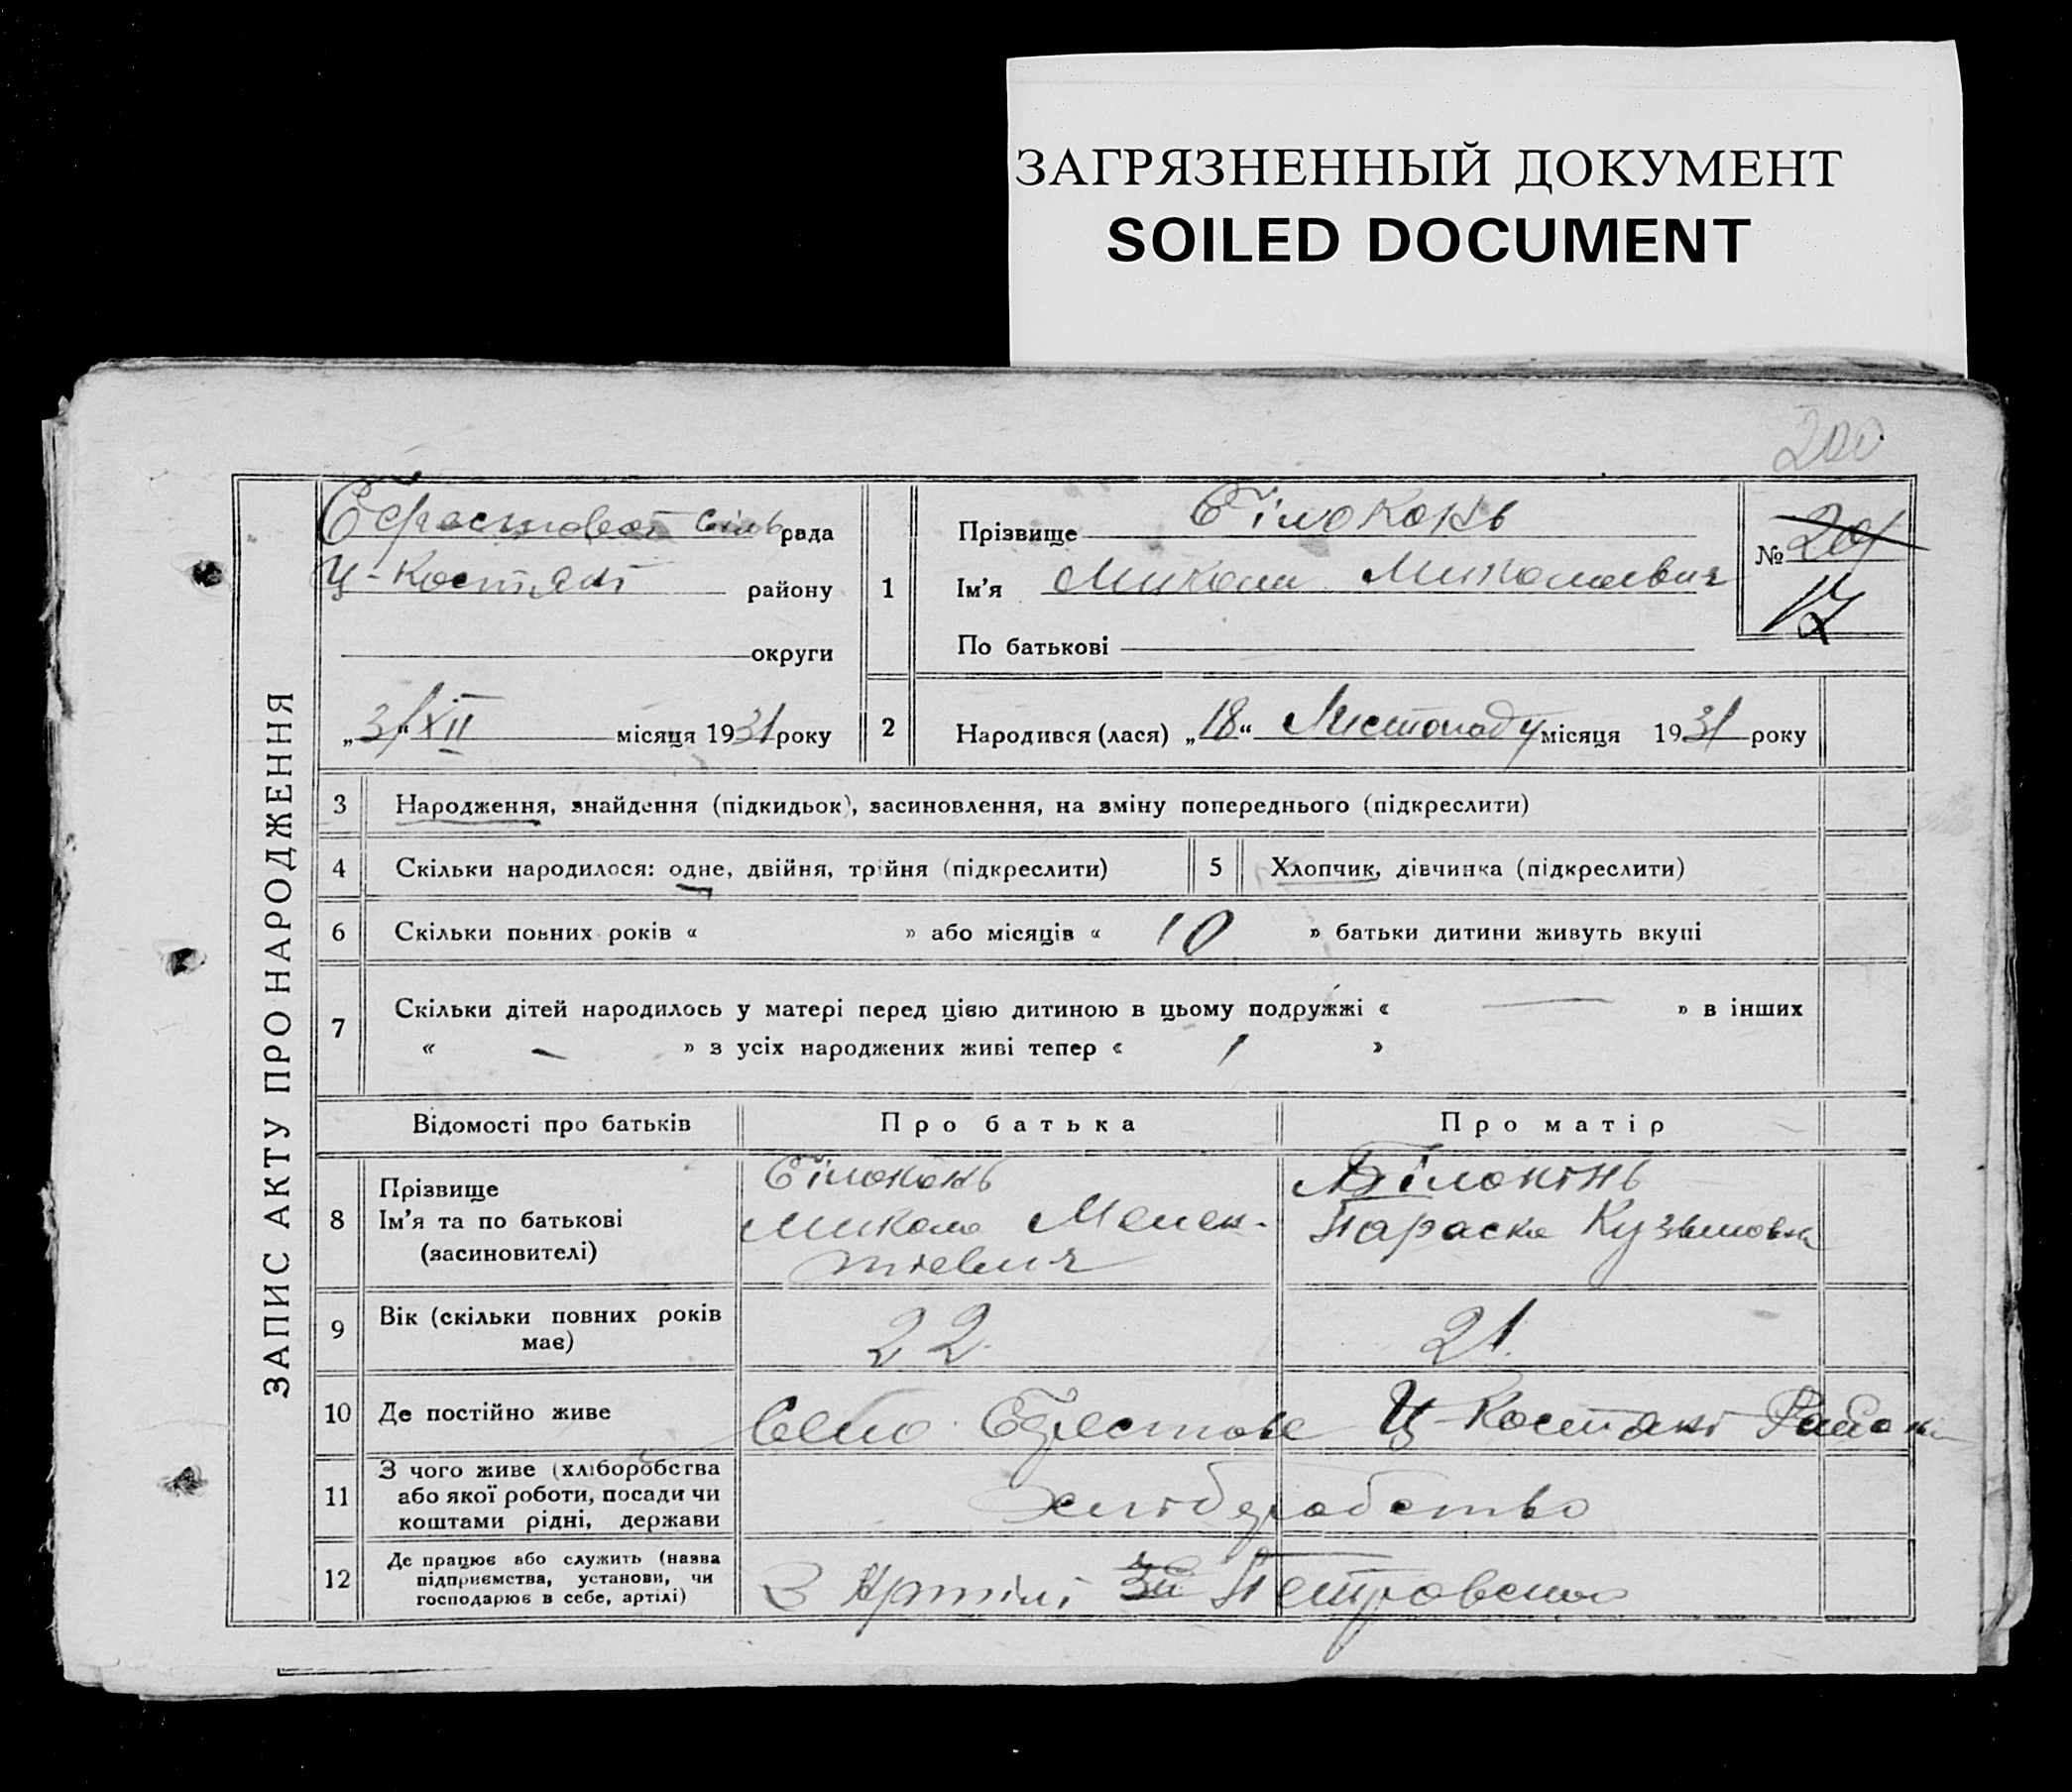 ЗАГРЯЗНЕННЫЙ ДОКУМЕНТ
SOILED DOCUMENT
200
ЗАПИС АКТУ ПРО НАРОДЖЕННЯ
рада
Ц-Костянт району
округи
„3/XII місяця 1931 року
1
Прізвище Білоконь
Ім'я Микола Миколаевич
По батькові
№ 20
17
2 Народився (лася) „18“ Листопаду місяця 1931 року
3 Народження, знайдення (підкидьок), засиновлення, на зміну попереднього (підкреслити)
4 Скільки народилося: одне, двійня, трійня (підкреслити)
5 Хлопчик, дівчинка (підкреслити)
6 Скільки повних років « » або місяців « 10 » батьки дитини живуть вкупі
7 Скільки дітей народилось у матері перед цією дитиною в цьому подружжі « — » в інших
« – » з усіх народжених живі тепер « 1 »
Відомості про батьків Про батька Про матір
8
Прізвище
Ім'я та по батькові
(засиновителі)
Білоконь
Микола Мелен-
тіевич
Білокінь
Параска Кузьмовна
9 Вік (скільки повних років
має)
22 21
10 Де постійно живе Село Ц-Костянт Району
11 З чого живе (хліборобства
або якої роботи, посади чи
коштами рідні, держави
хліборобство
12 Де працює або служить (назва
підприємства, установи, чи
господарює в себе, артілі)
В Артілі Петровского